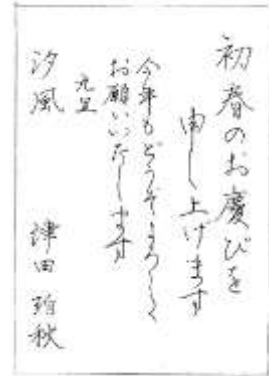 初春のお慶びを
申し上げます
今年もどうぞよろしく
お願いいたします
元旦
汐風
津田 珀秋